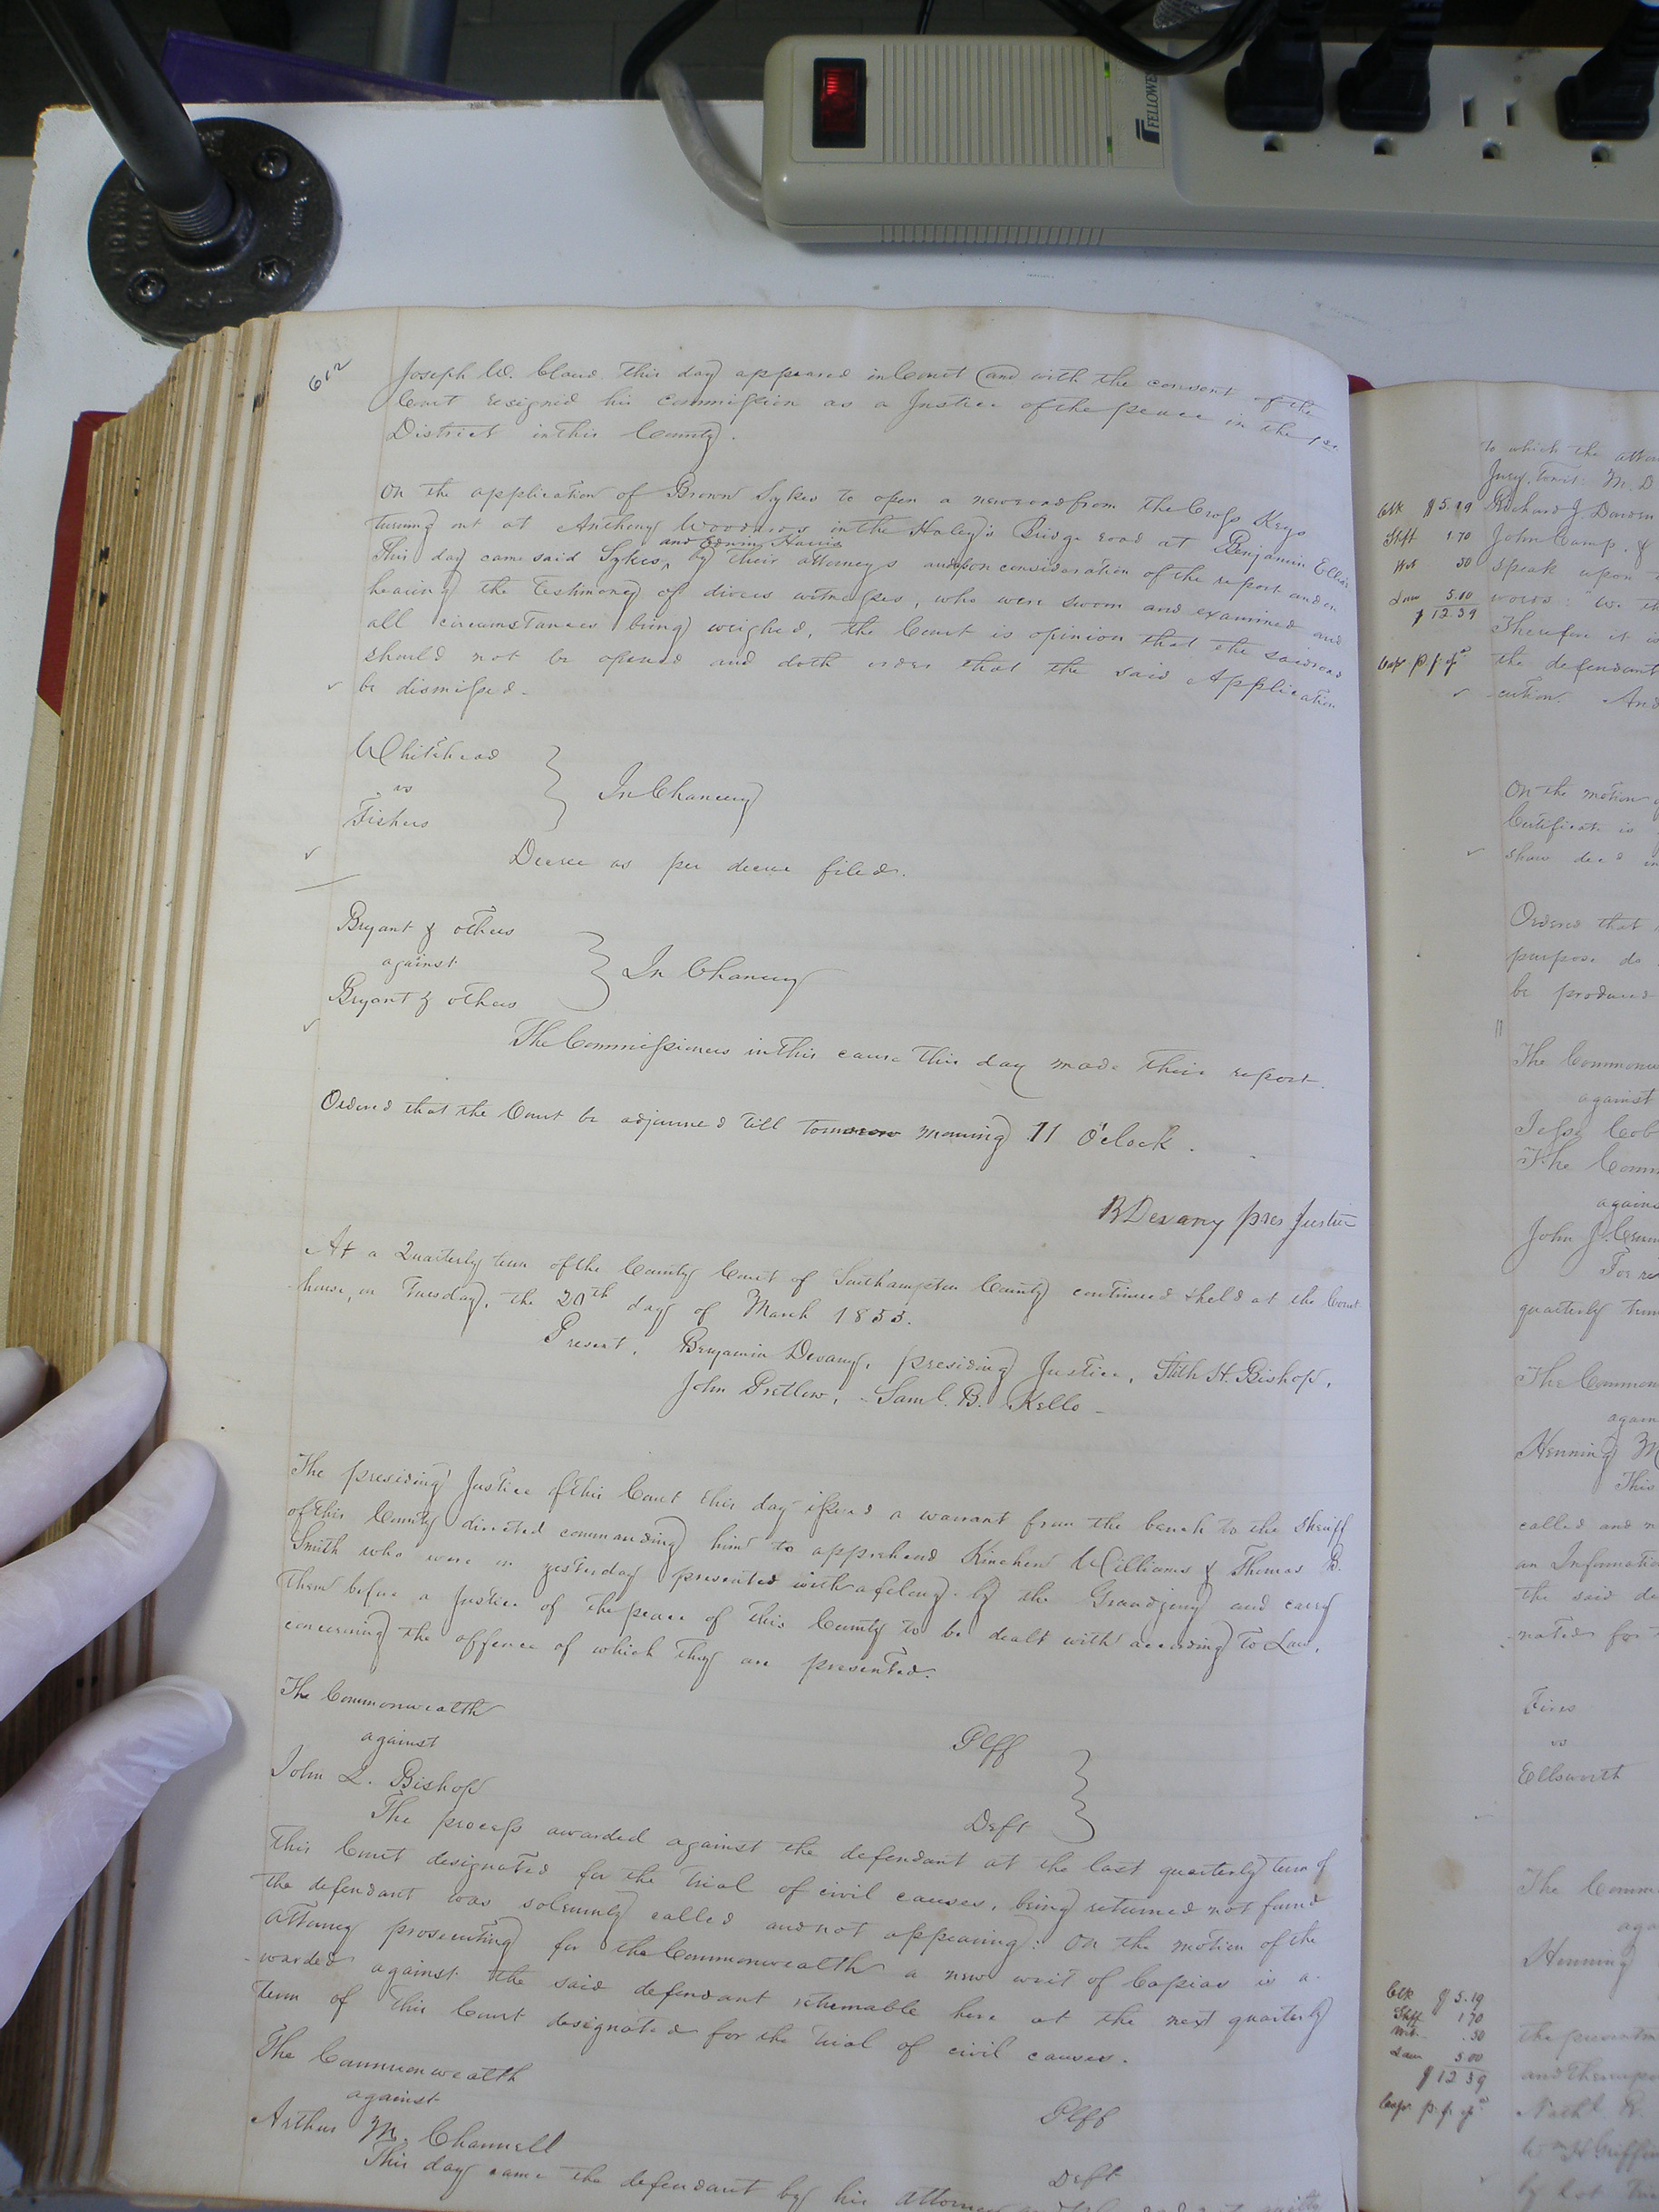 FELLOWES
612
Joseph W. Claud this day appeared in Court and with the consent of the
Court resigned his commission as a Justice of the peace in the 1st
District in this County.
On the application of Brown Sykes to open a new road from the Cross Keys
turning out at Anthony Woodards in the Haley's Bridge road at Benjamin Ellis
and Edwin Harris
This day came said Sykes, by their attorneys and upon consideration of the report and on
hearing the testimony of divers witnesses, who were sworn and examined and
all circumstances being weighed, the Court is opinion that the said road
should not be opened and doth order that the said Application
be dismissed.
Whitehead
vs
Fishers
In Chancery
Decree as per decree filed.
Bryant & others
against
Bryant & others
In Chancery
The Commissioners in this cause this day made their report.
Ordered that the Court be adjourned till tomorrow morning 11 o'clock.
B Devany pres Justice
At a Quarterly term of the County Court of Southampton County continued & held at the Court
house, on Tuesday, the 20th day of March 1855.
Present, Benjamin Devany, presiding Justice, Stith H. Bishop,
John Pretlow, Saml. B. Kello
The presiding Justice of this Court this day issued a warrant from the bench to the Sheriff
of this County directed commanding him to apprehend Kinchen Williams & Thomas B.
Smith who were on yesterday presented with a felony by the Grandjury and carry
them before a Justice of the peace of this County to be dealt with according to Law,
concerning the offence of which they are presented.
The Commonwealth
Plff
against
John L. Bishop
Deft
The process awarded against the defendant at the last quarterly term of
this Court designated for the trial of civil causes, being returned not found
the defendant was solemnly called and not appearing: On the motion of the
attorney prosecuting for the Commonwealth a new writ of Capias is a-
warded against the said defendant returnable here at the next quarterly
term of this Court designated for the trial of civil causes.
The Commonwealth
Plff
against
Arthur M. Channell
Deft
This day came the defendant by his attorney
to which the
Jury, towit: M. D
Clk $5.19 Richard J. Darden
Shff 1.70 John Camp, &
Wit 50 speak upon
Law 5.00 words: "We th
$12.39 Therefore it is
the defendant
cution. And
On the motion
Certificate is
show deed in
Ordered that
purpose do
be produced
The Commonw
against
Jesse Cob
The Comm
against
John J.
For re
quarterly term
The Common
again
Henning M
This
called and n
an Informatio
the said de
nated for
Fires
vs
Ellsworth
The Comm
aga
Henning
Clk $5.19
Shff 1.70
Wit. .50 the presentm
Law 5.00
$12.39 and thereupo
Nathl. R.
Wm H Griffin
by lot